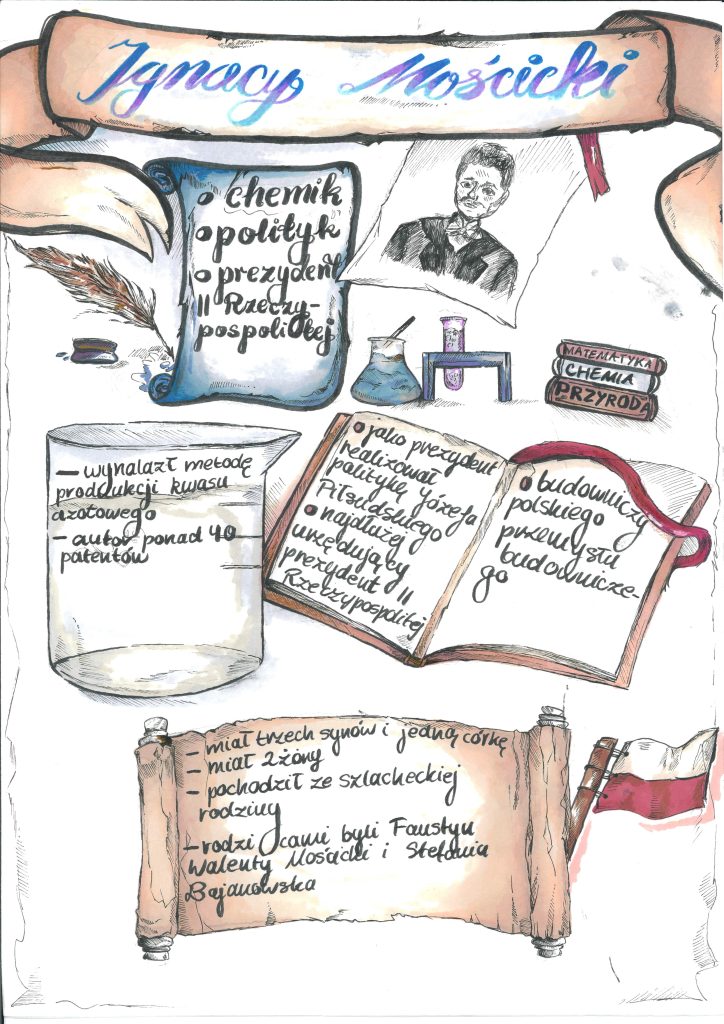 Ignacy Mościcki
• chemik
• polityk
• prezydent
II Rzeczy-
pospolitej
MATEMATYKA
CHEMIA
PRZYRODA
– wynalazł metodę
produkcji kwasu
azotowego
– autor ponad 40
patentów
• jako prezydent
realizował
politykę Józefa
Piłsudskiego
• najdłużej
urzędujący
prezydent II
Rzeczypospolitej
• budowniczy
polskiego
przemysłu
budownicze-
go
– miał trzech synów i jedną córkę
– miał 2 żony
– pochodził ze szlacheckiej
rodziny
– rodzicami byli Faustyn
Walenty Mościcki i Stefania
Bojanowska